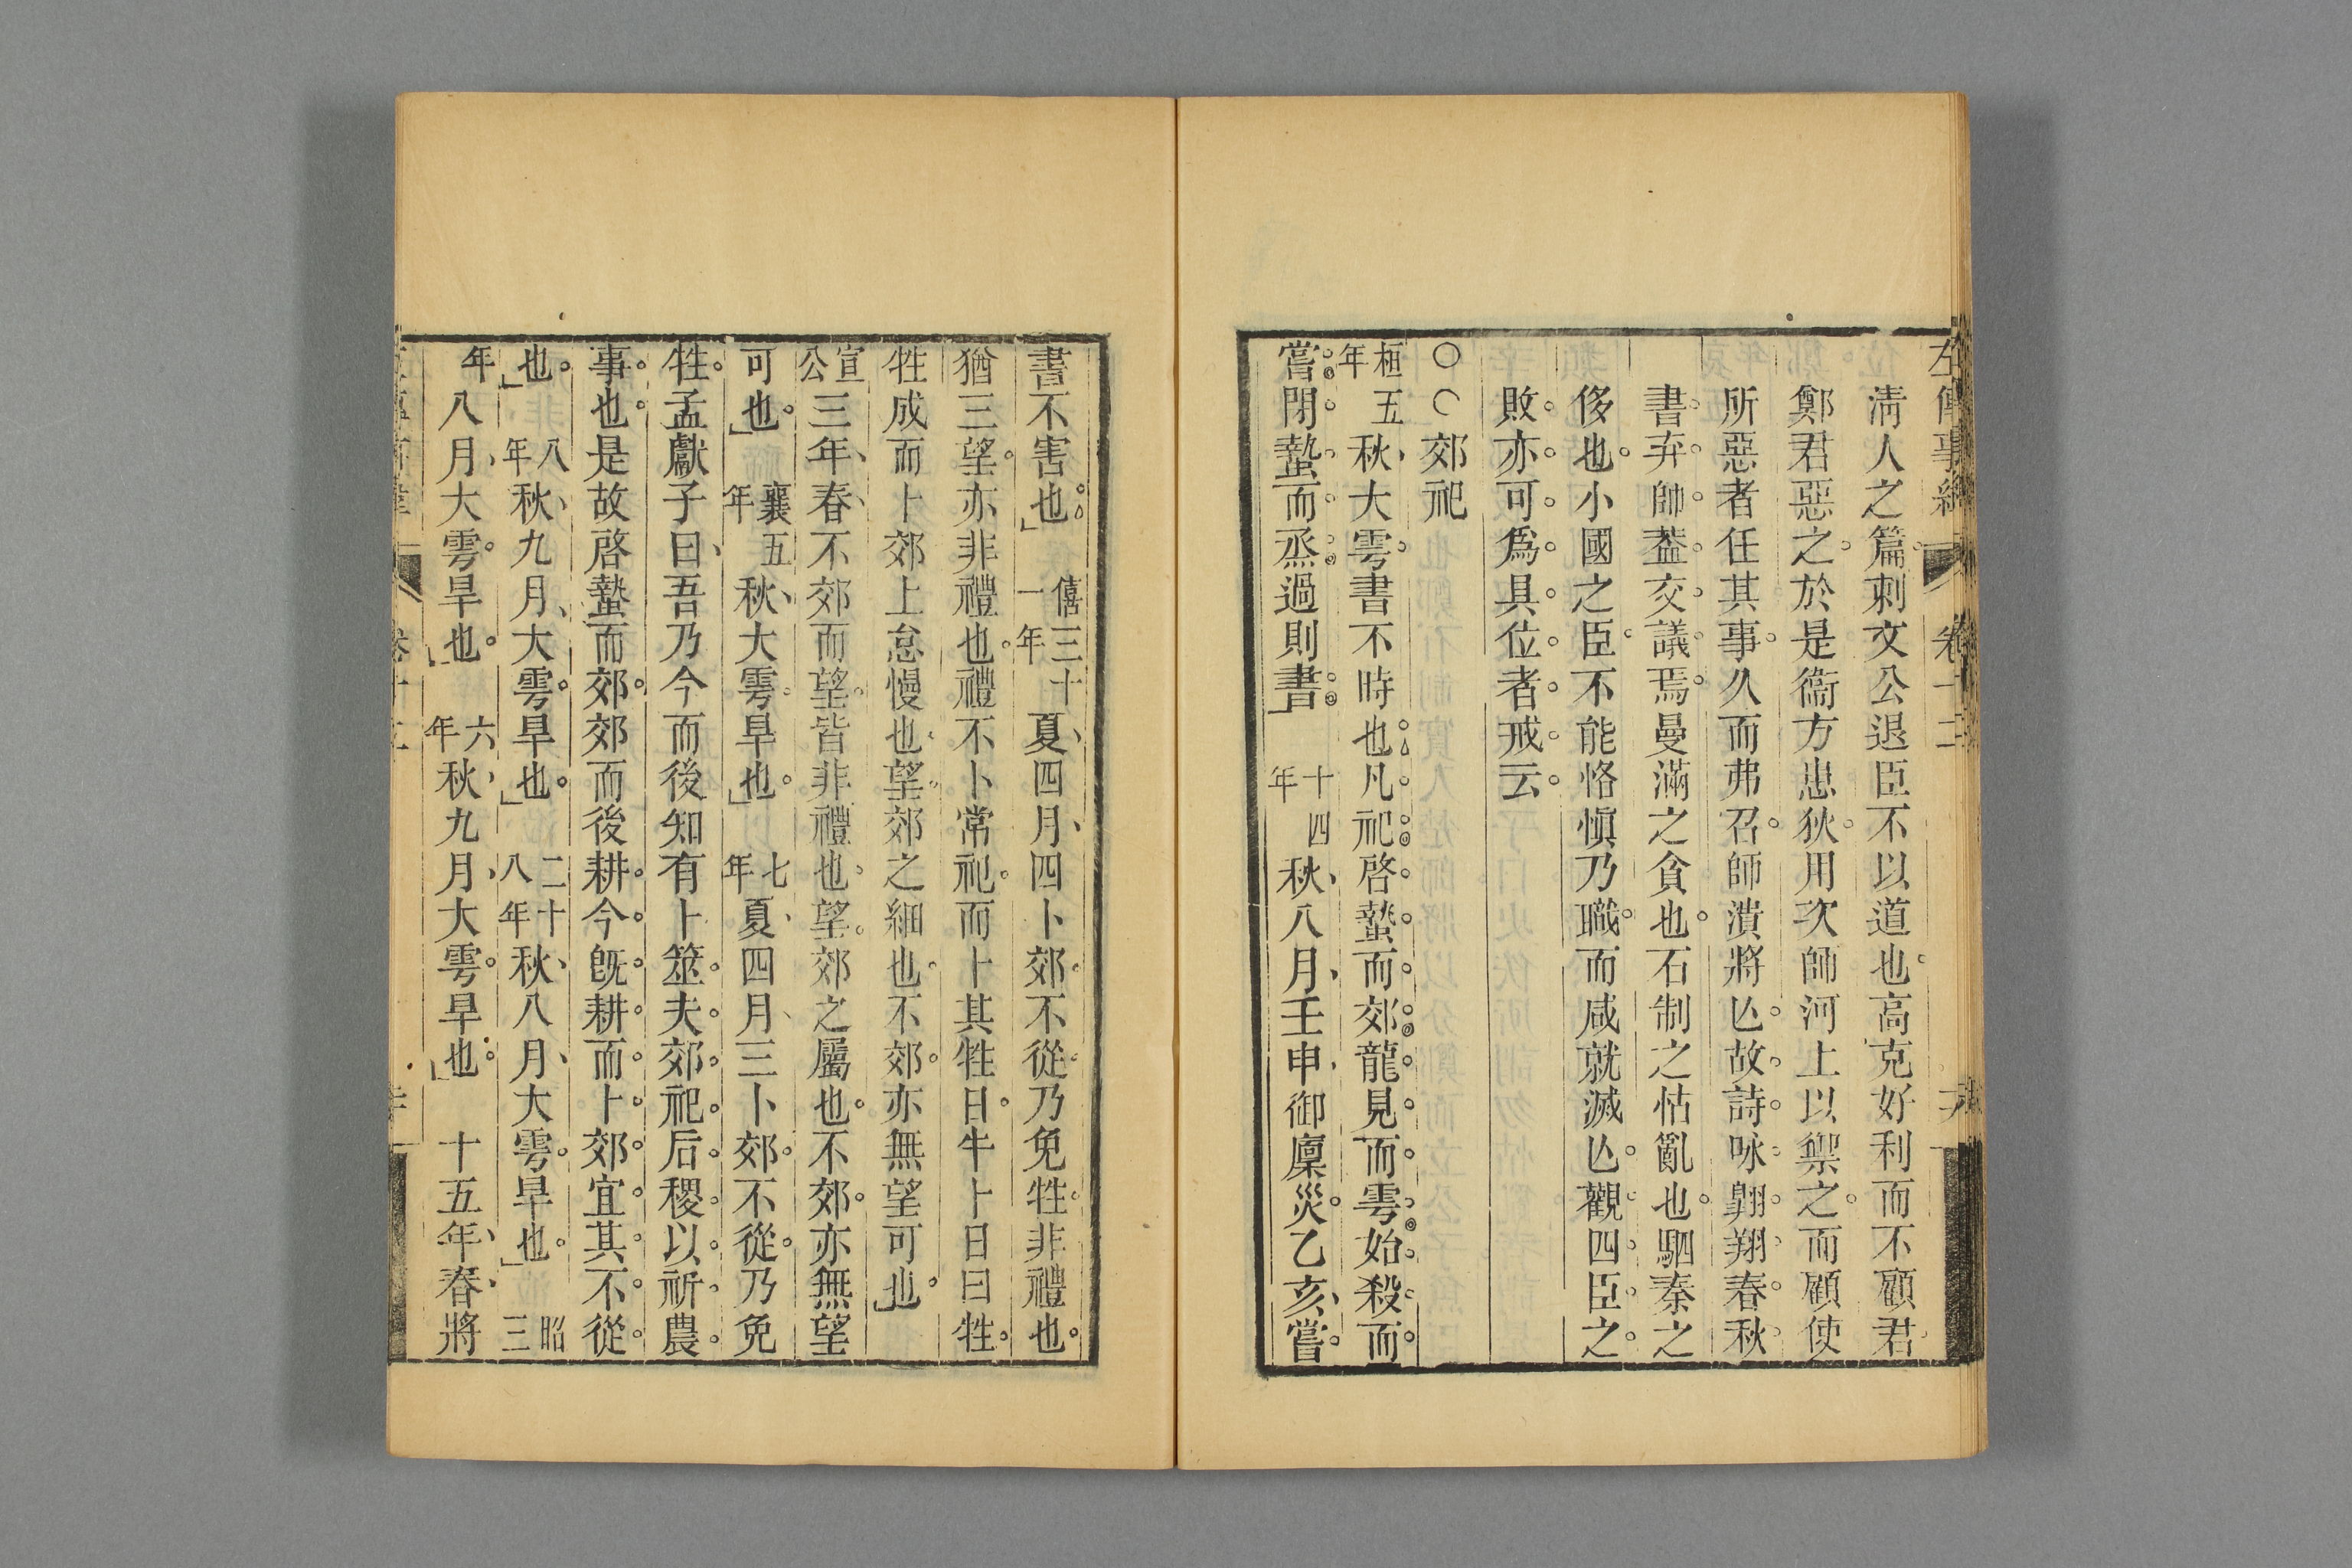 清人之篇刺文公退臣不以道也高克好利而不顧君
鄭君惡之於是衞方患狄用次師河上以禦之而顧使
所惡者任其事久而弗召師潰將亾故詩咏翺翔春秋
書弃帥葢交譏焉曼滿之貪也石制之怙亂也駟秦之
侈也小國之臣不能恪愼乃職而咸就滅亾觀四臣之
敗亦可爲具位者戒云
○○郊祀
桓五年秋大雩書不時也凡祀啓蟄而郊龍見而雩始殺而
嘗閉蟄而烝過則書 十四年秋八月壬申御廩災乙亥嘗
書不害也 僖三十一年夏四月四卜郊不從乃免牲非禮也
猶三望亦非禮也禮不卜常祀而卜其牲日牛卜日曰牲
牲成而卜郊上怠慢也望郊之細也不郊亦無望可也
宣公三年春不郊而望皆非禮也望郊之屬也不郊亦無望
可也 襄五年秋大雩旱也 七年夏四月三卜郊不從乃免
牲孟獻子曰吾乃今而後知有卜筮夫郊祀后稷以祈農
事也是故啓蟄而郊郊而後耕今旣耕而卜郊宜其不從
也 八年秋九月大雩旱也 二十八年秋八月大雩旱也 昭三
年八月大雩旱也 六年秋九月大雩旱也 十五年春將